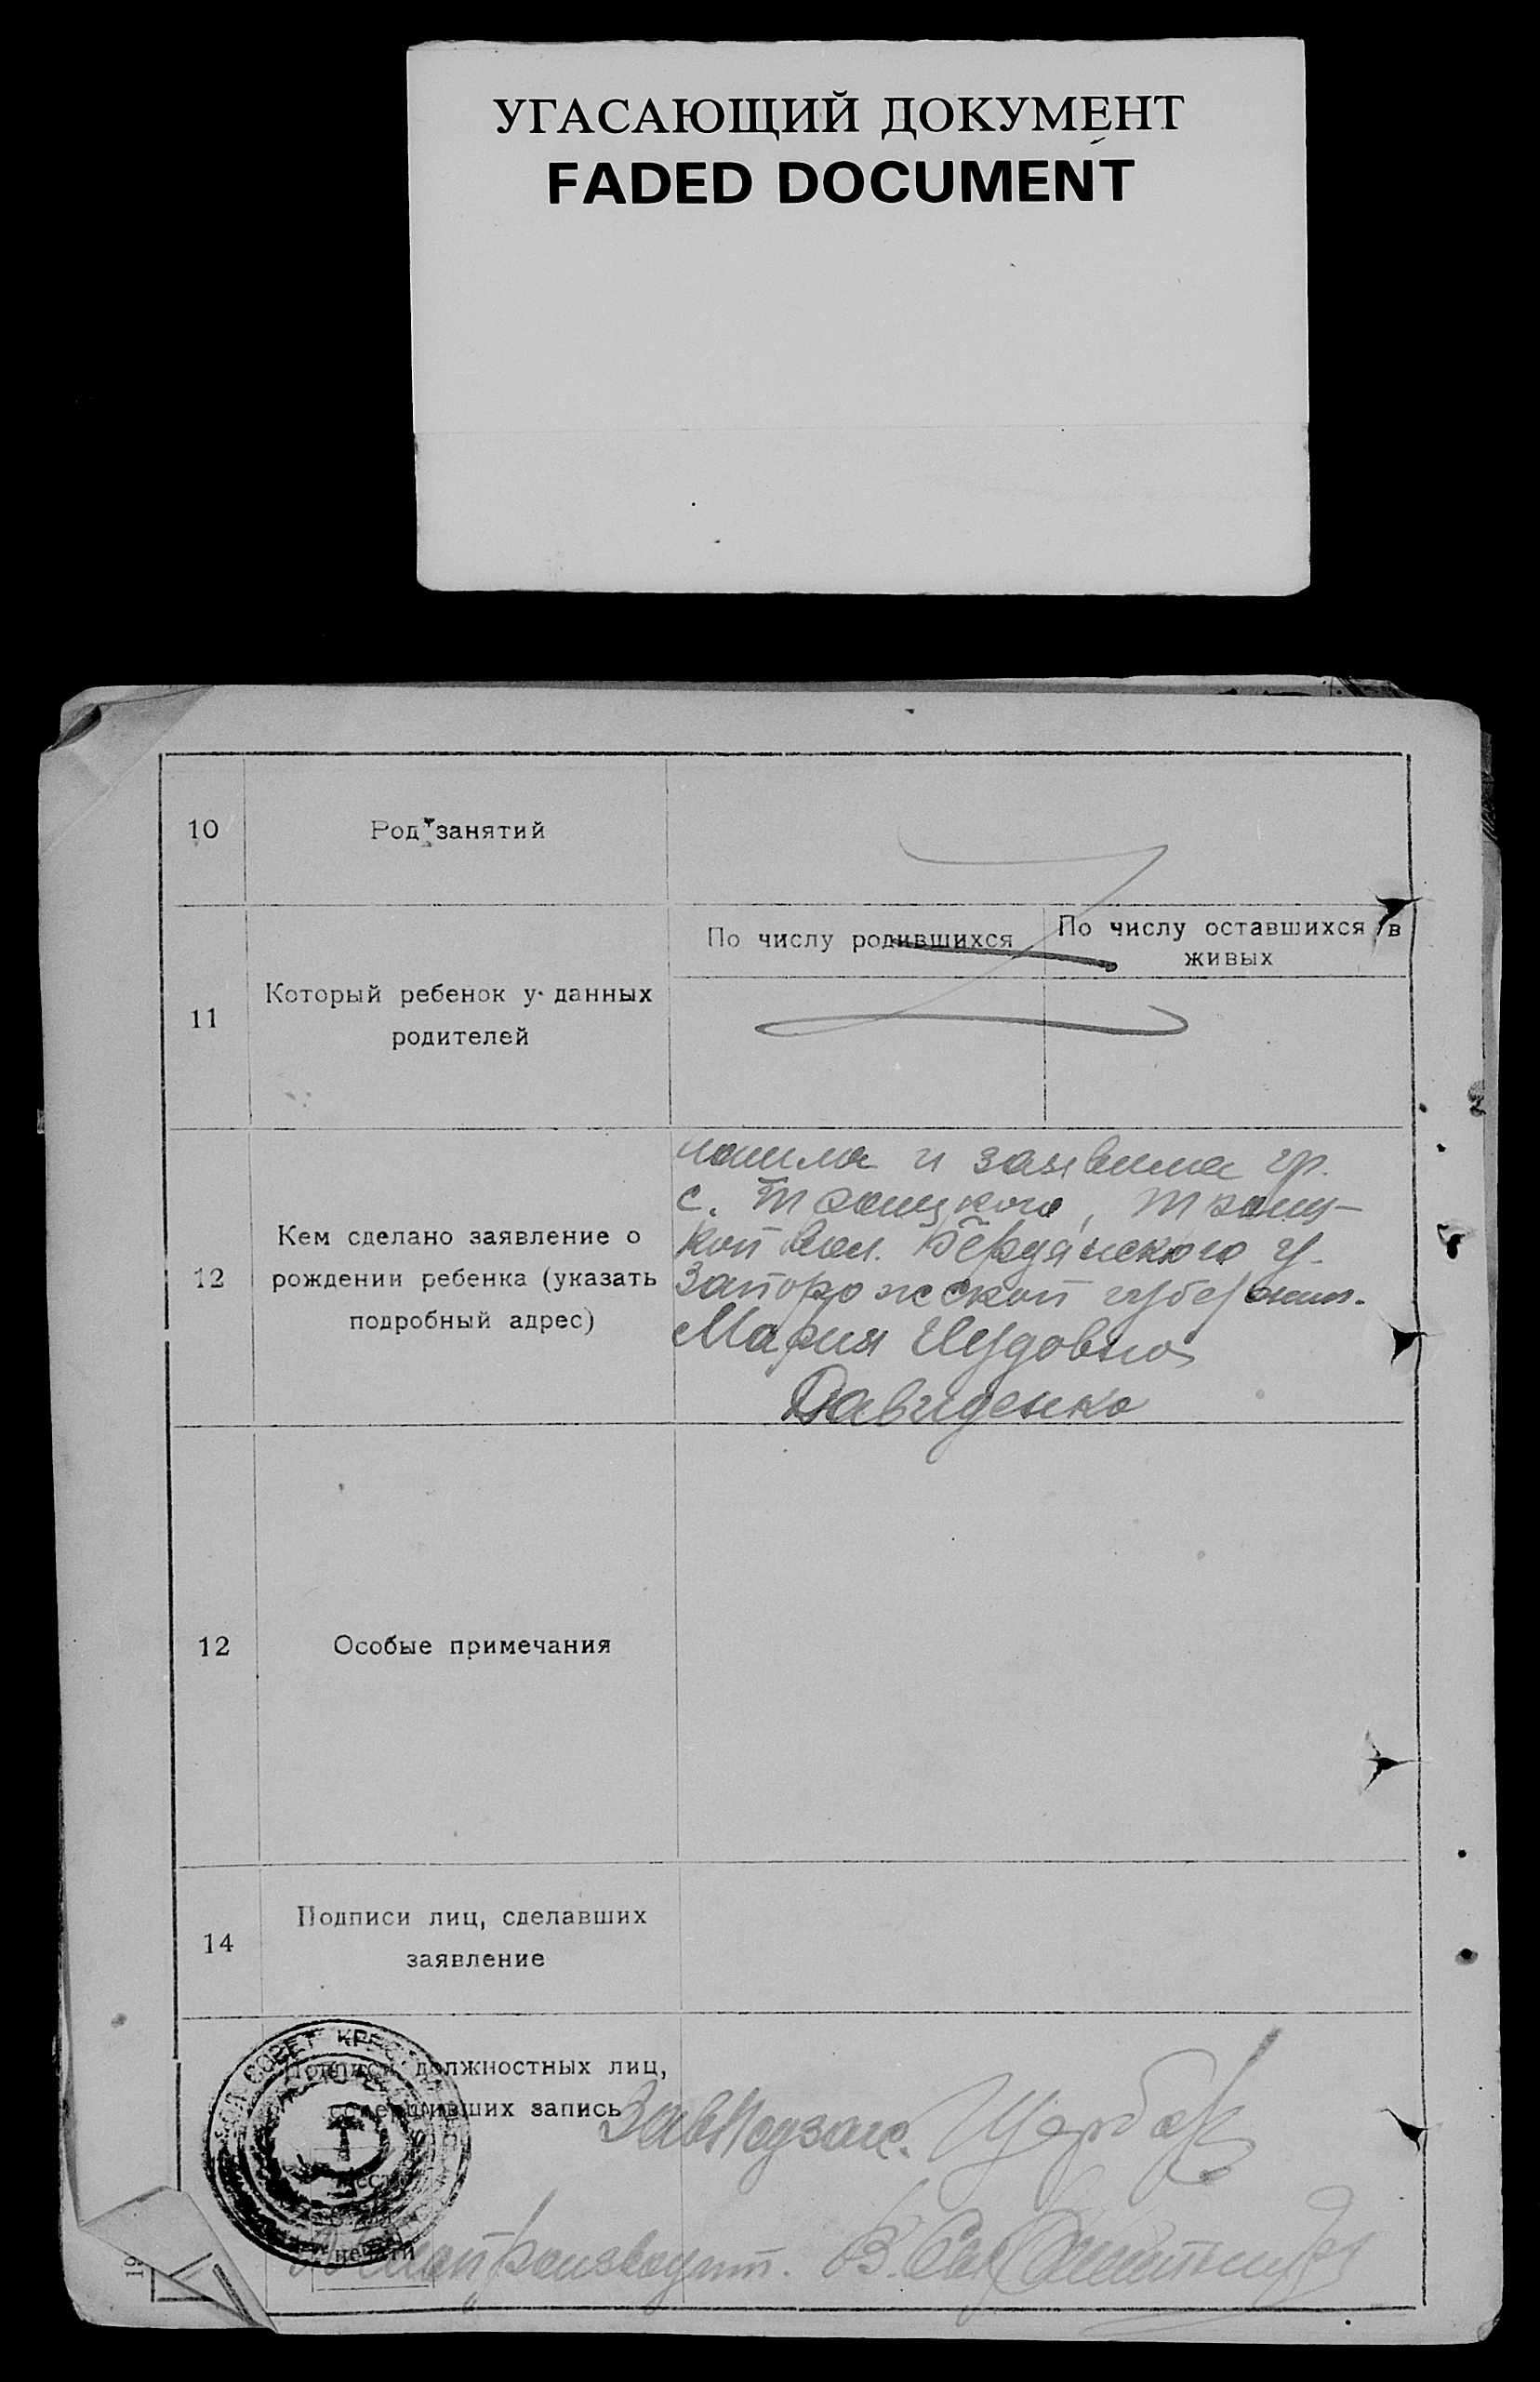 УГАСАЮЩИЙ ДОКУМЕНТ
FADED DOCUMENT
10
Род занятий
11
Который ребенок у данных
родителей
По числу родившихся
По числу оставшихся в
живых
12
Кем сделано заявление о
рождении ребенка (указать
подробный адрес)
и заявила гр.
с. Троицкого, Троиц-
кой вол. Бердянского у.
Запорожской губернии.
Мария Иудовна
Давиденко
12
Особые примечания
14
Подписи лиц, сделавших
заявление
Подписи должностных лиц,
совершивших запись
Завподзаг. Щербак
печати
Делопроизводит.
19